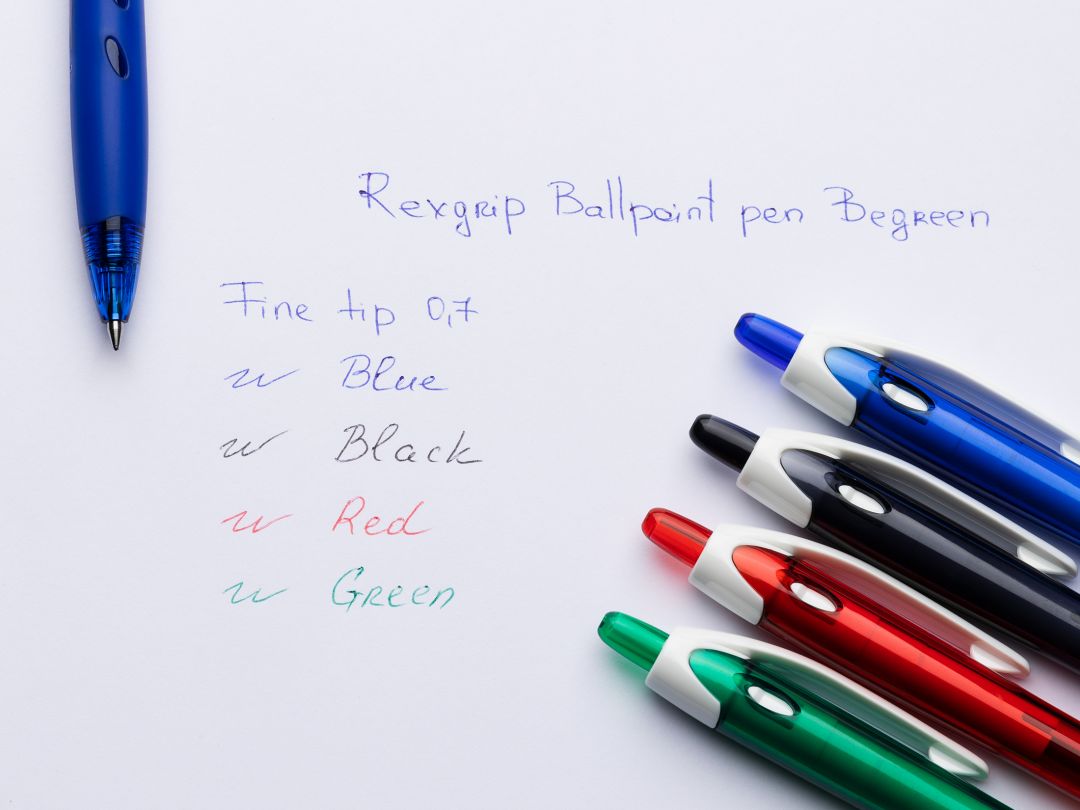 Rexgrip Ballpoint pen Begreen
Fine tip 0,7
Blue
Black
Red
Green